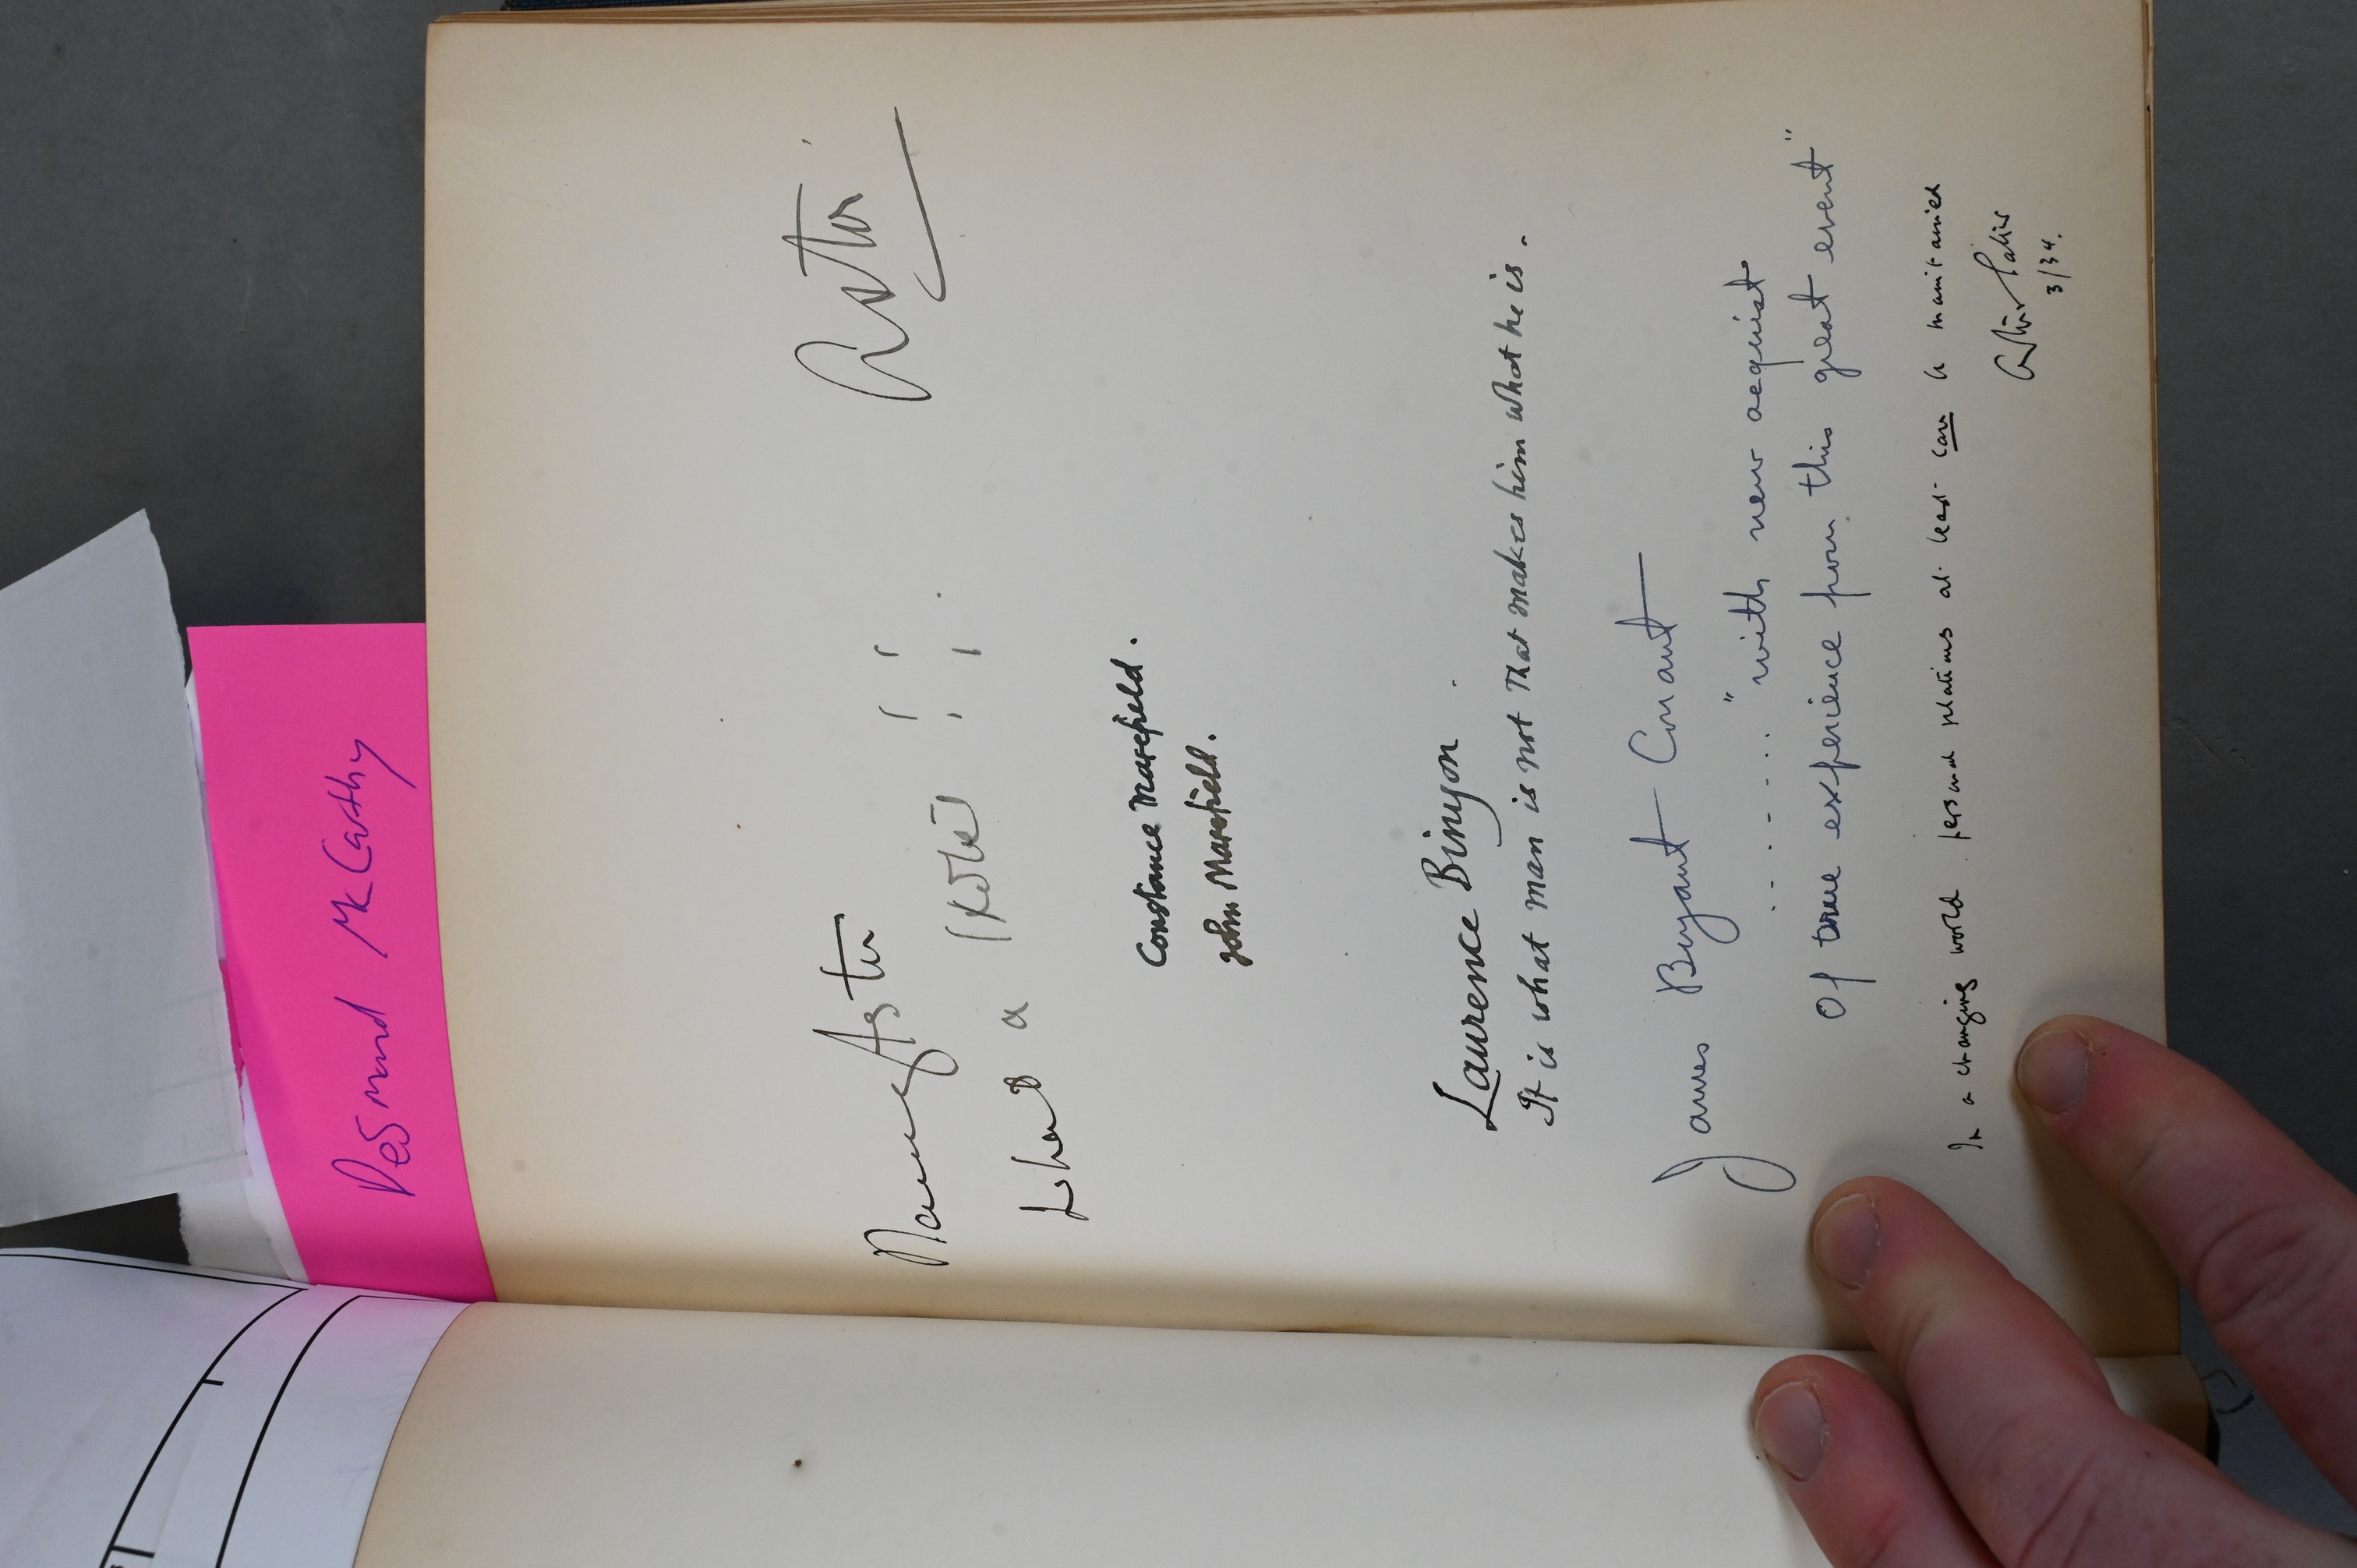 Desmond McCarthy
Nancy Astor
Astor
what a
Constance Masefield.
John Masefield.
Laurence Binyon.
It is what man is not that makes him what he is.
James Bryant Conant
"with new acquist
Of true experience from this great event"
In a changing world personal relations at least can be maintained
3/34.